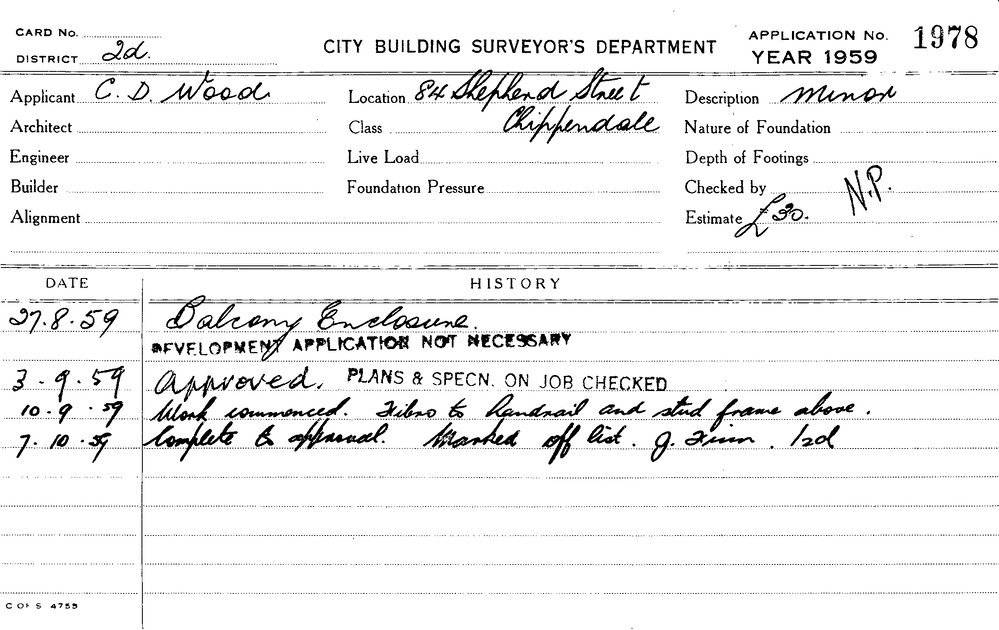 CARD No.
DISTRICT 2d.
CITY BUILDING SURVEYOR'S DEPARTMENT
APPLICATION No. 1978
YEAR 1959
Applicant C. D. Wood Location 84 Shepherd Street Description Minor
Architect Class Chippendale Nature of Foundation
Engineer Live Load Depth of Footings
Builder Foundation Pressure Checked by N.P.
Alignment Estimate £30.
DATE HISTORY
27.8.59 Balcony Enclosure.
DEVELOPMENT APPLICATION NOT NECESSARY
3.9.59 Approved. PLANS & SPECN. ON JOB CHECKED
10.9.59 Work commenced. Fibro to handrail and stud frame above.
7.10.59 Complete to approval. Marked off list. J. Finn.
C OF S 4755